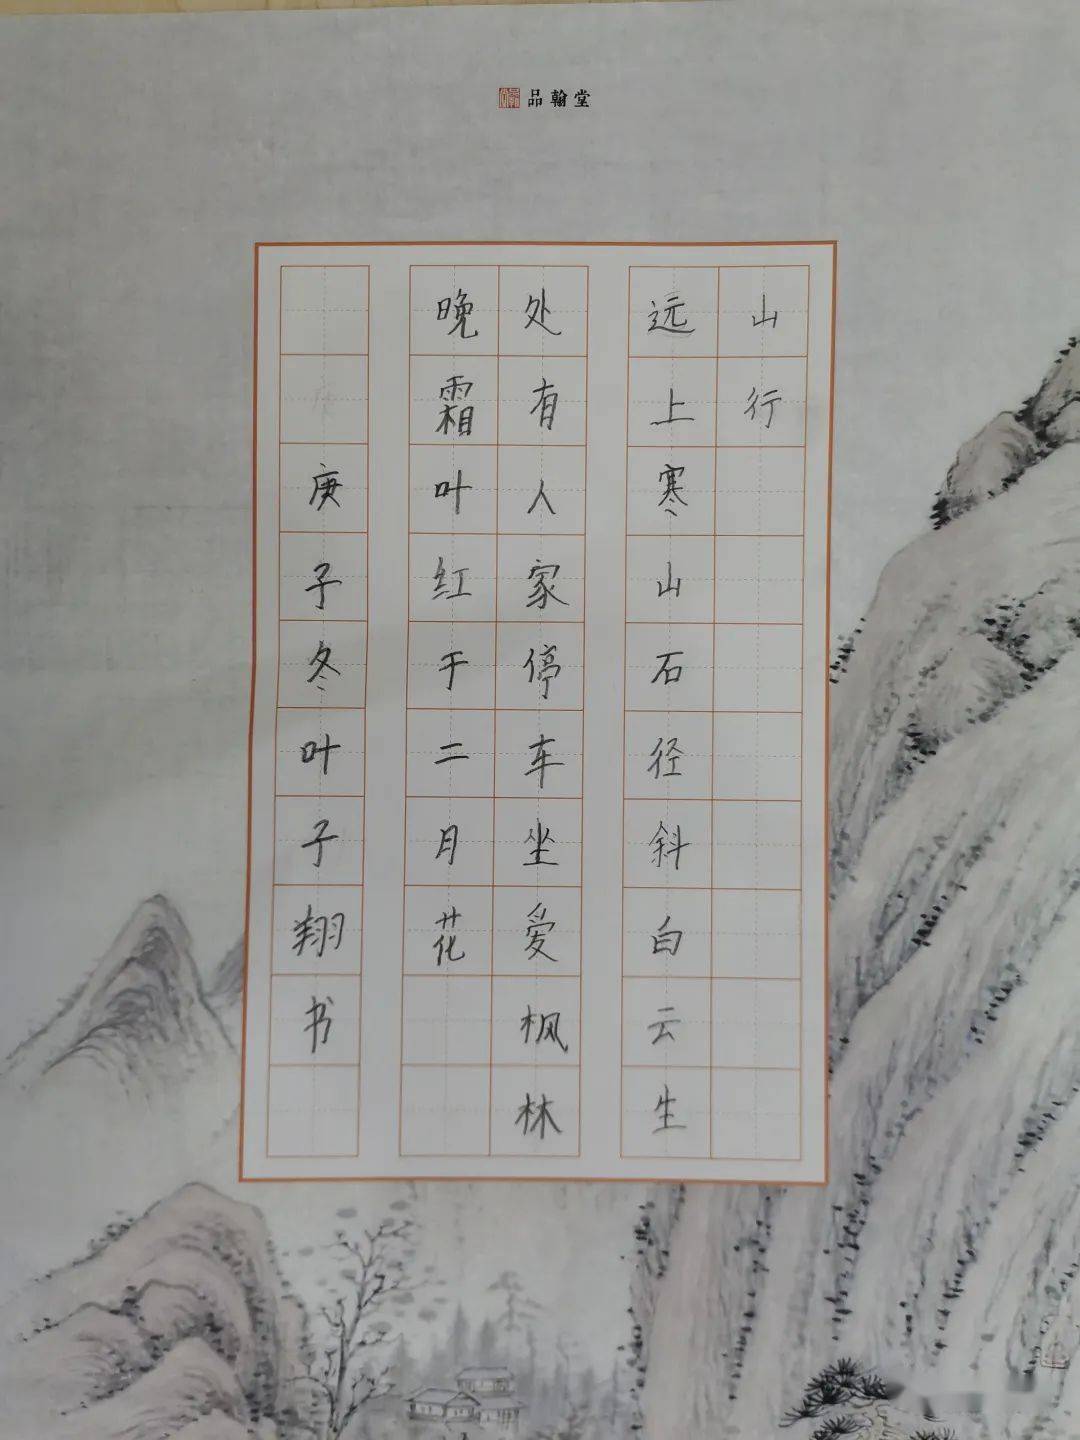 品翰堂
山行
远上寒山石径斜白云生
处有人家停车坐爱枫林
晚霜叶红于二月花
庚子冬叶子翔书